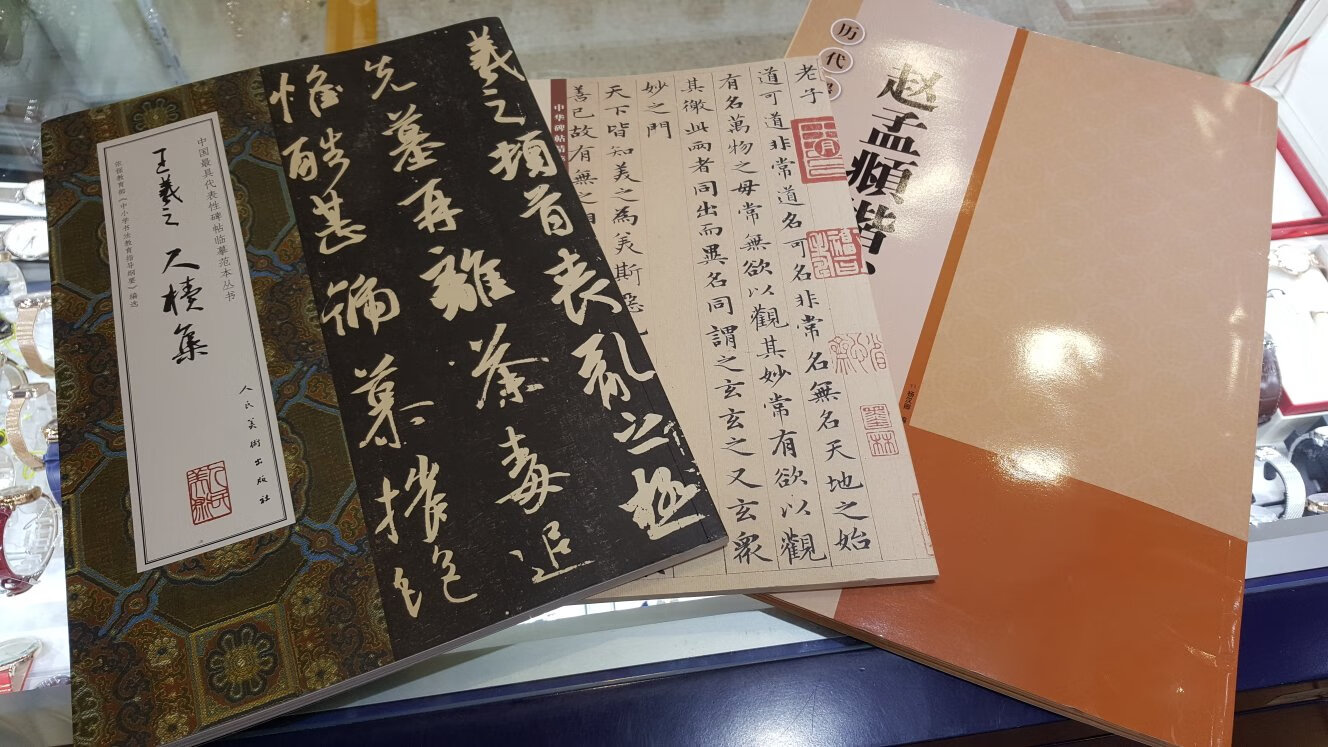 中国最具代表性碑帖临摹范本丛书
依据教育部《中小学书法教育指导纲要》编选
王羲之
尺牍集
人民美术出版社
羲之頓首喪亂之極
先墓再離荼毒追
惟酷甚號慕摧絕
中华碑帖精
老子
道可道非常道名可名非常名無名天地之始
有名萬物之母常無欲以觀其妙常有欲以觀
其徼此兩者同出而異名同謂之玄玄之又玄衆
妙之門
天下皆知美之為美斯惡
善已故有無之相
墨林
历代
赵孟頫楷